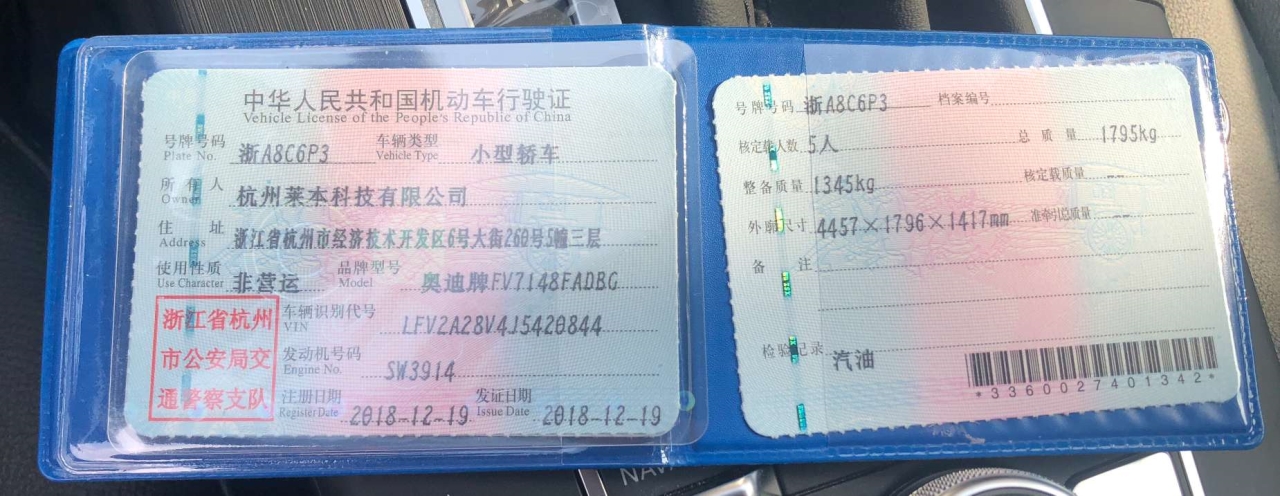 中华人民共和国机动车行驶证
Vehicle License of the People's Republic of China
号牌号码 浙A8C6P3 车辆类型 小型轿车
Plate No. Vehicle Type
所有人 杭州莱本科技有限公司
Owner
住址 浙江省杭州市经济技术开发区6号大街260号5幢三层
Address
使用性质 非营运 品牌型号 奥迪牌FV7148FADBG
Use Character Model
浙江省杭州
市公安局交
通警察支队
车辆识别代号 LFV2A28V4J5420844
VIN
发动机号码 SW3914
Engine No.
注册日期 2018-12-19 发证日期 2018-12-19
Register Date Issue Date
号牌号码 浙A8C6P3 档案编号
核定载人数 5人 总质量 1795kg
整备质量 1345kg 核定载质量 --
外廓尺寸 4457×1796×1417mm 准牵引总质量 --
备注
检验记录 汽油
*3360027401342*
NAV